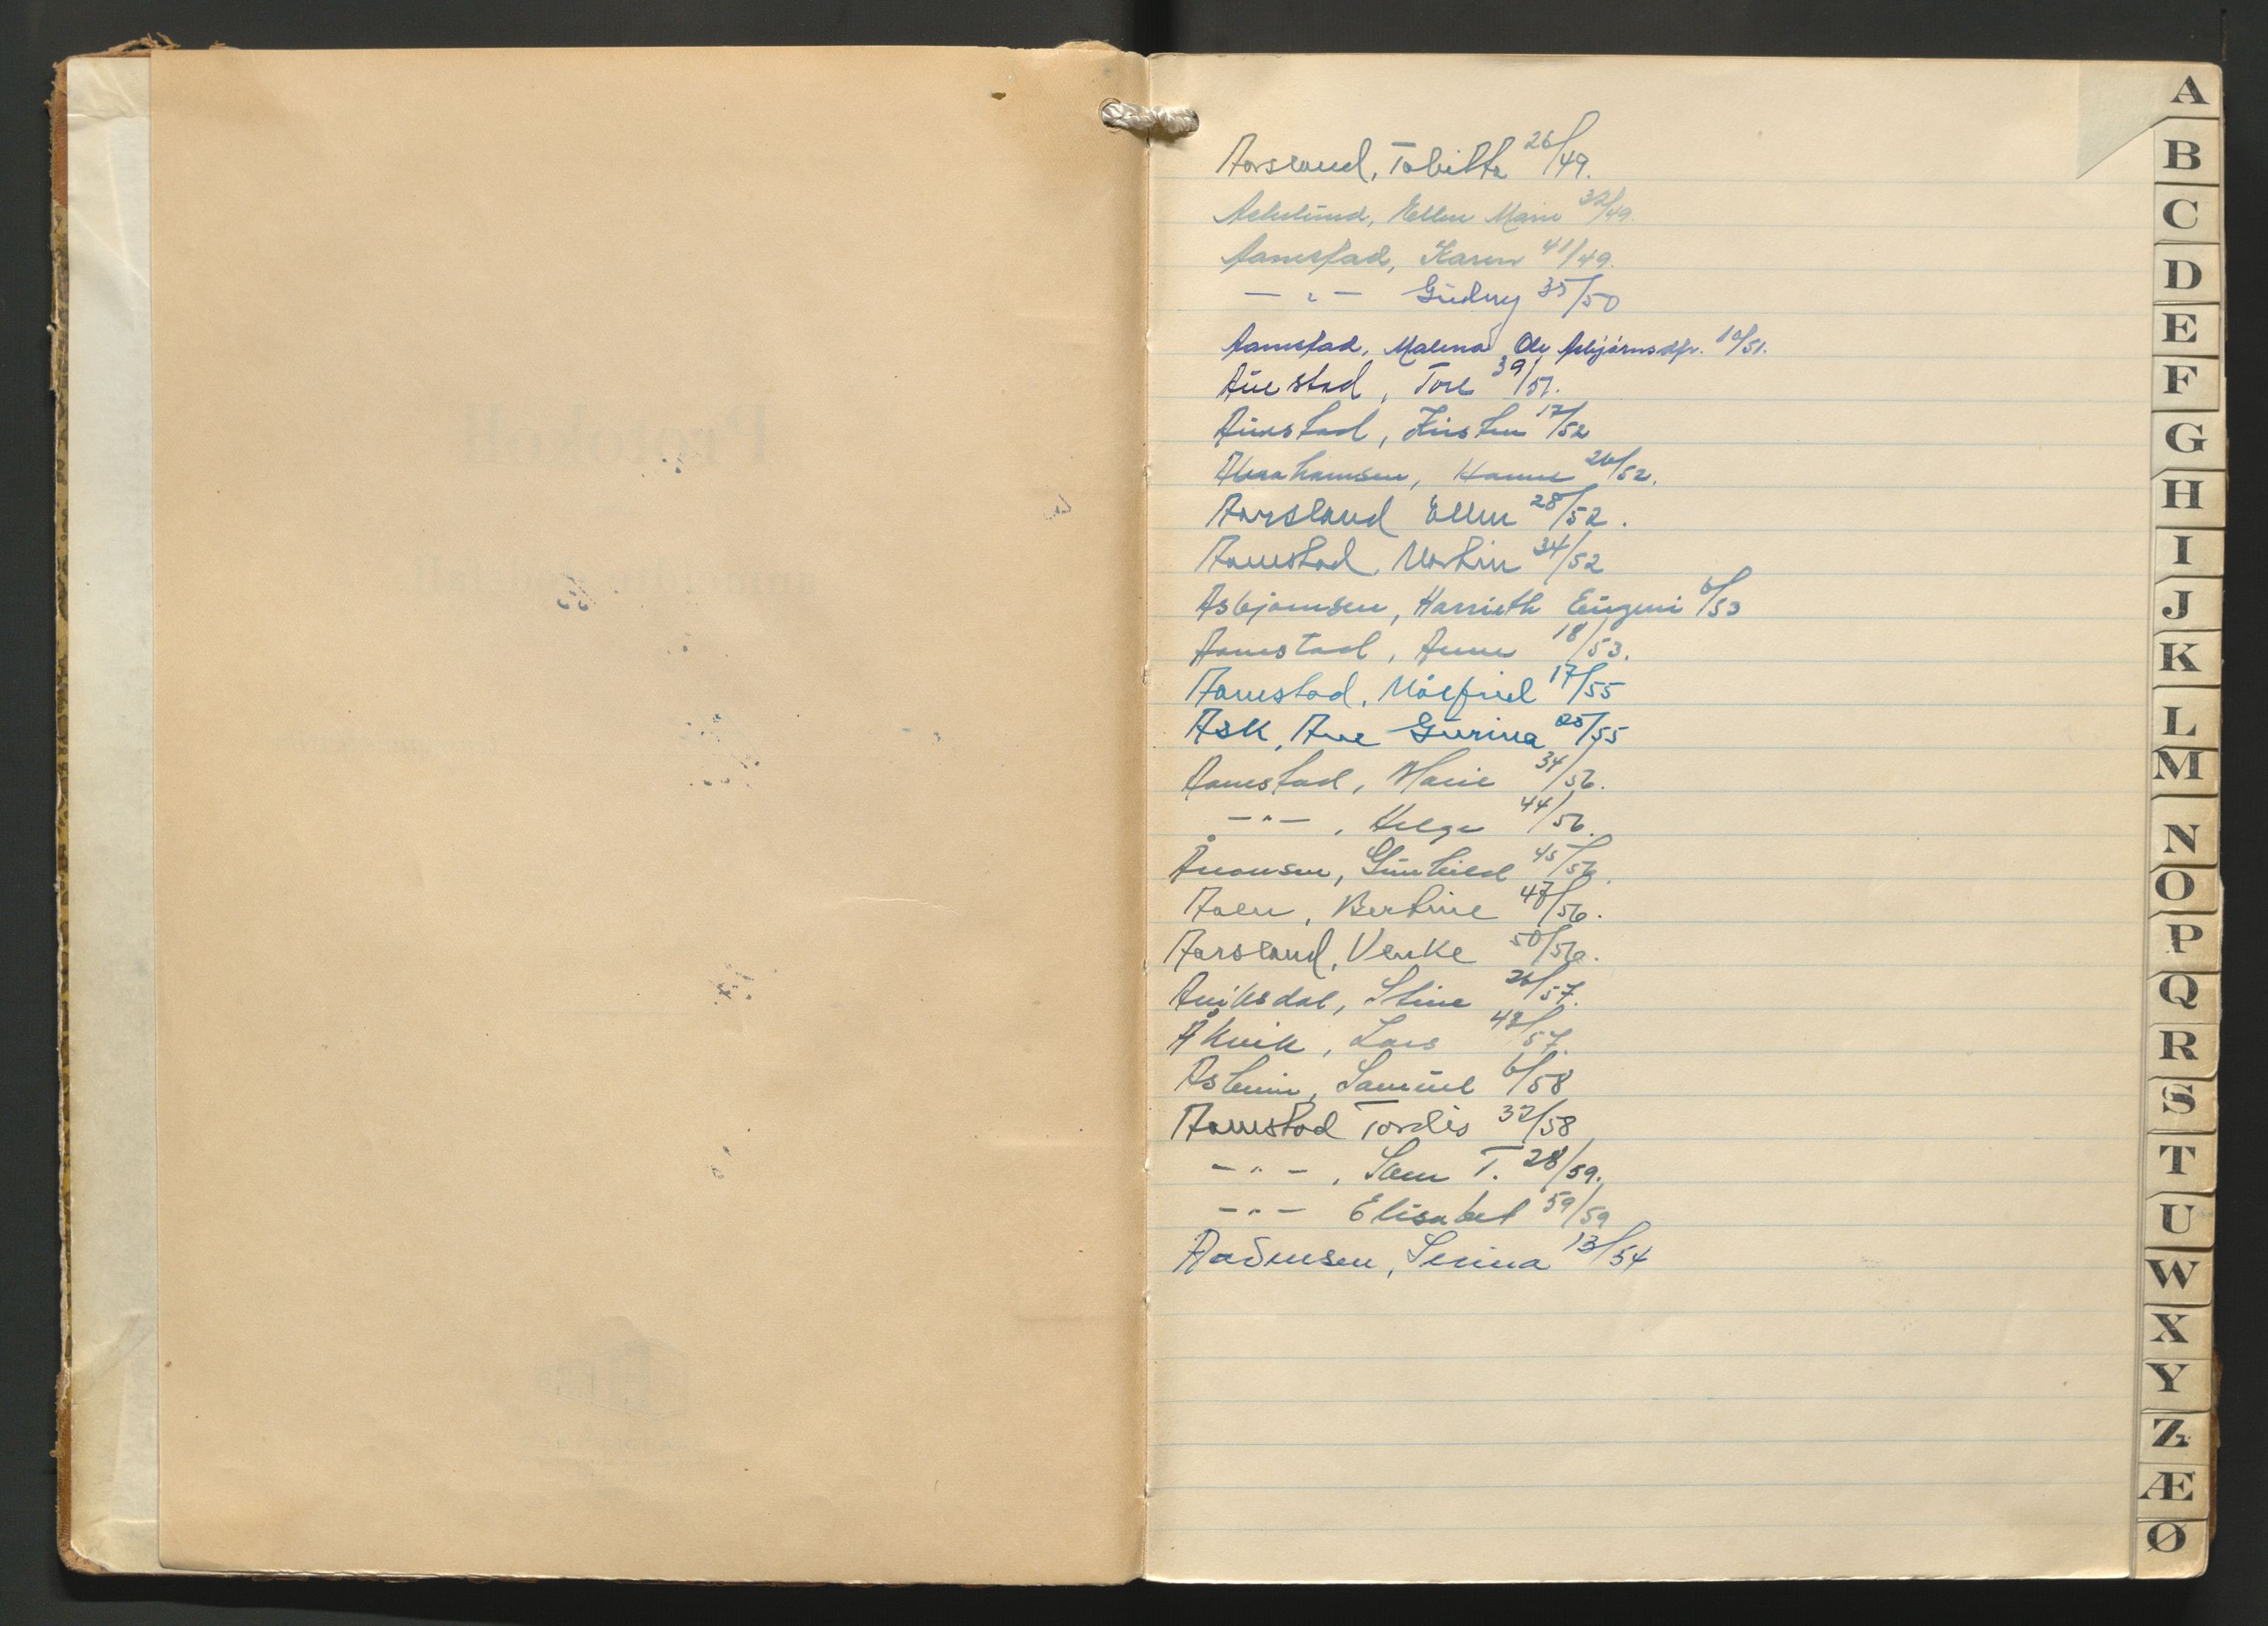 Aarsland, Tabitta 26/49.
Asklund, Ellen Marie 32/49.
Aanestad, Karen 41/49.
— " — Gudny 35/50
Aanestad, Malena Ole Asbjørnsdtr. 10/51.
Auestad, Tore 39/51.
Auestad, Kirsten 17/52
Abrahamsen, Hanne 26/52.
Aarsland Ellen 28/52.
Aanestad, Martin 34/52
Asbjørnsen, Harrieth Eugeni 6/53
Aanestad, Anne 18/53.
Aanestad, Målfrid 17/55
Ask, Ane Gurina 25/55
Aanestad, Marie 34/56.
— " —, Helge 44/56.
Ånonsen, Gunhild 45/56.
Aaen, Bertine 47/56.
Aarsland, Venke 50/56.
Auiksdal, Stine 26/57.
Åkvik, Lars 43/57.
Asheim, Samuel 6/58
Aanestad Tordis 32/58
— " —, Sam T. 28/59.
— " — Elisabet 59/59
Aadnesen, Serina 13/54
A
B
C
D
E
F
G
H
I
J
K
L
M
N
O
P
Q
R
S
T
U
W
X
Y
Z
Æ
Ø